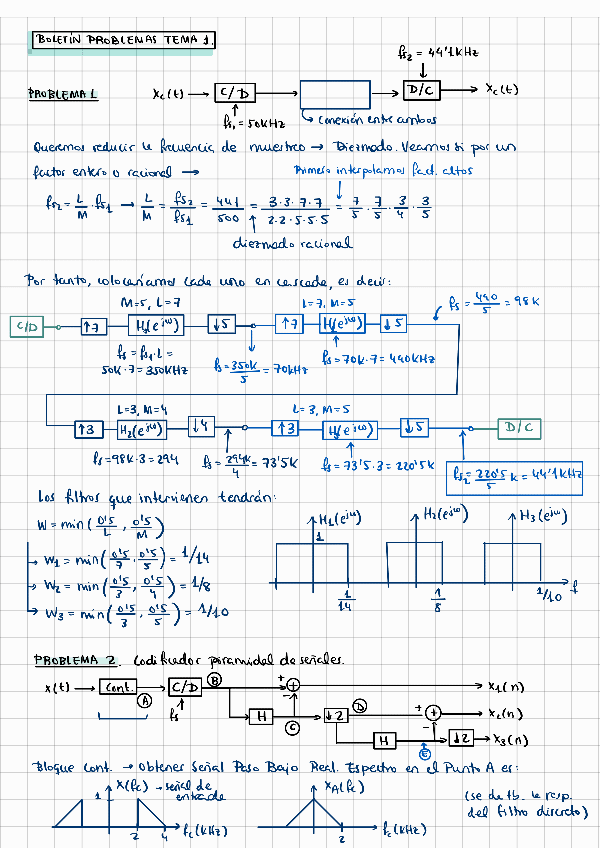 BOLETÍN PROBLEMAS TEMA 1.
fs₂ = 44'1KHz
PROBLEMA 1
Xc(t) → C/D → → D/C → Xc(t)
fs₁ = 50KHz
conexión entre ambos
Queremos reducir la frecuencia de muestreo → Diezmado. Veamos si por un
factor entero o racional →
Primero interpolamos fact. altos
fs₂ = L/M · fs₁ → L/M = fs₂/fs₁ = 441/500 = 3·3·7·7/2·2·5·5·5 = 7/5 · 7/5 · 3/4 · 3/5
diezmado racional
Por tanto, colocaríamos cada uno en cascada, es decir:
M=5, L=7
L=7, M=5
fs = 490/5 = 98K
C/D ↑7 H₁(e^jω) ↓5 ↑7 H₁(e^jω) ↓5
fs = fs₁·L =
50K·7 = 350KHz
fs = 350K/5 = 70KHz
fs = 70K·7 = 490KHz
L=3, M=4
L=3, M=5
↑3 H₂(e^jω) ↓4 ↑3 H₃(e^jω) ↓5 D/C
fs = 98K·3 = 294
fs = 294K/4 = 73'5K
fs = 73'5·3 = 220'5K
fs₂ = 220'5/5 K = 44'1KHz
Los filtros que intervienen tendrán:
W = min(0'5/L, 0'5/M)
→ W₁ = min(0'5/7, 0'5/5) = 1/14
→ W₂ = min(0'5/3, 0'5/4) = 1/8
→ W₃ = min(0'5/3, 0'5/5) = 1/10
H₁(e^jω)
1
1/14
H₂(e^jω)
1/8
H₃(e^jω)
1/10
f
PROBLEMA 2. Codificador piramidal de señales.
x(t) → cont. A C/D B + − → x₁(n)
fs
H C ↓2 D + − → x₂(n)
H E ↓2 → x₃(n)
Bloque Cont. → Obtener Señal Paso Bajo Real. Espectro en el Punto A es:
X(fc) → señal de
entrada
1
2
4
fc(KHz)
XA(fc)
2
fc(KHz)
(se da tb. la resp.
del filtro discreto)